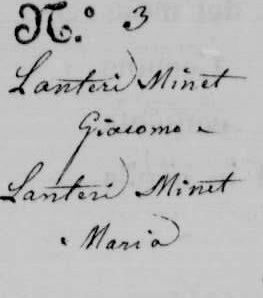 N.º 3
Lanteri Minet
Giacomo e
Lanteri Minet
Maria